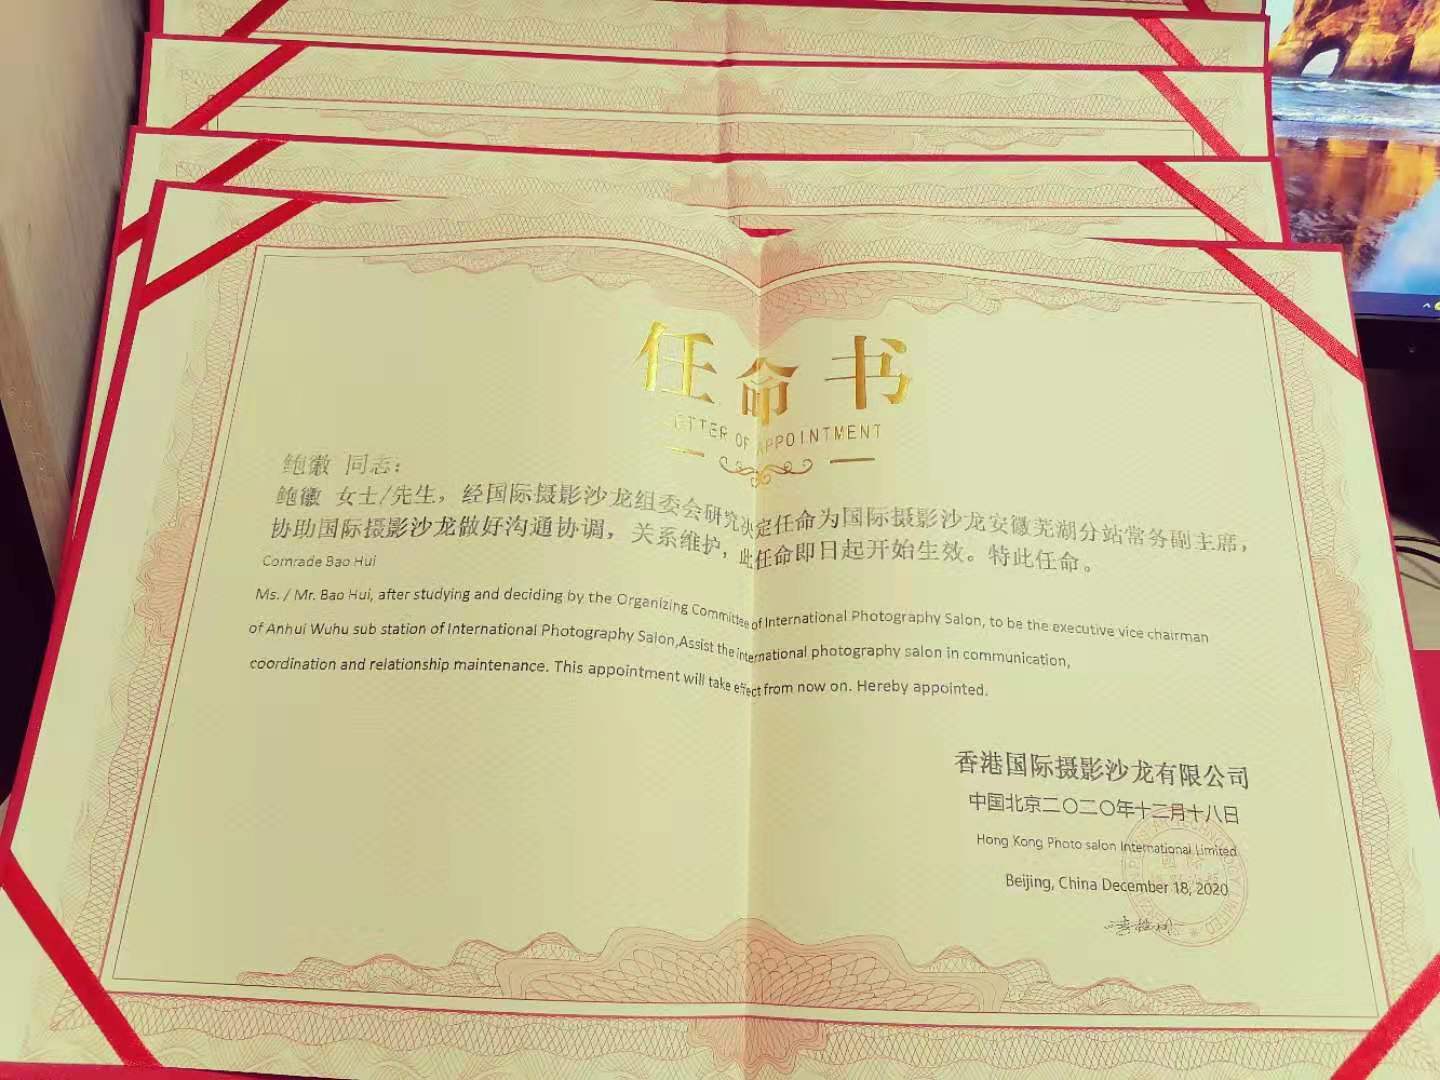 任命书
LETTER OF APPOINTMENT
鲍徽 同志：
鲍徽 女士/先生，经国际摄影沙龙组委会研究决定任命为国际摄影沙龙安徽芜湖分站常务副主席，
协助国际摄影沙龙做好沟通协调，关系维护，此任命即日起开始生效。特此任命。
Comrade Bao Hui
Ms. / Mr. Bao Hui, after studying and deciding by the Organizing Committee of International Photography Salon, to be the executive vice chairman
of Anhui Wuhu sub station of International Photography Salon,Assist the international photography salon in communication,
coordination and relationship maintenance. This appointment will take effect from now on. Hereby appointed.
香港国际摄影沙龙有限公司
中国北京二〇二〇年十二月十八日
Hong Kong Photo salon International Limited
Beijing, China December 18, 2020